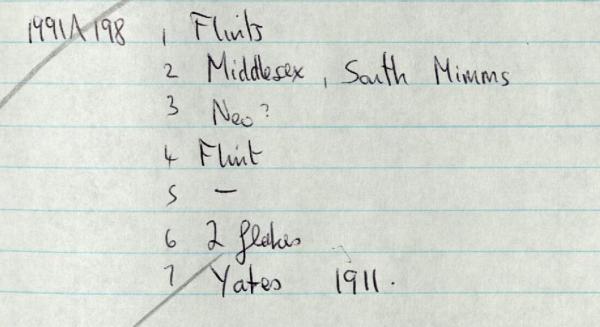 1991A 198 1 Flints
2 Middlesex, South Mimms
3 Neo?
4 Flint
5 –
6 2 flakes
7 Yates 1911.